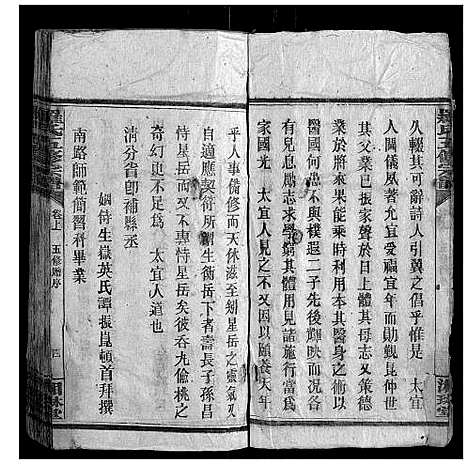 久輟其可辭詩人引翼之倡乎惟是　太宜
人閫儀夙著允宜愛福宜年的勛觀崑仲世
其父業已振家聲於日上體其母志又策德
業於將來果能乘時利用本其醫身之術以
醫國何患不與樸選二子先後輝映而況各
有兒息勵志求學窮其體用見諸施行當爲
家國光　太宜人目覩之因以頤養天年
乎人事備修而天休滋至紛星岳之靈氣又
自適應契衍所生蒞岳下者壽長子孫昌
恃星岳而又不專恃星岳矣彼吞九偷桃之
奇幻更不足爲　太宜人道也
清分省卽補縣丞
姻侍生嶽英氏譚振崑頓首拜撰
南路師範簡習科畢業
羅氏五修宗譜
卷上　五修贈序